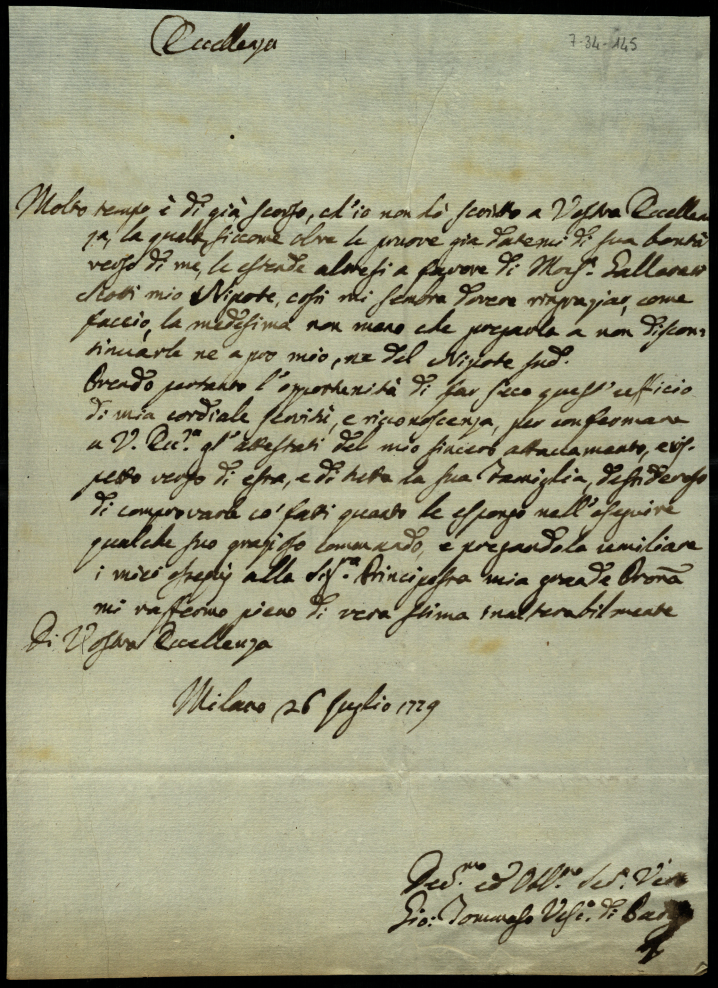 Eccellenza
7-34-145
Molto tempo è di già scorso, ch'io non hò scritto a Vostra Eccellen
za, la quale, siccome oltre le pruove già datemi di sua bontà
verso di me, le estende altresi a favore di Mons.r Gallarati
Scotti mio Nipote, così mi sembra dovere ringraziar, come
faccio, la medesima non meno che pregarla a non discon:
tinuarle ne a pro mio, ne del Nipote sud.o
Prendo pertanto l'opportunità di far seco quest'ufficio
di mia cordiale servitù, e riconoscenza, per confermare
a V. Ecc.za gl'attestati del mio sincero attaccamento, e ris-
petto verso di essa, e di tutta la sua Famiglia, desideroso
di comprovarle co' fatti quanto le espongo nell'eseguire
qualche suo grazioso commando, e pregandola umiliare
i miei ossequj alla Sig.ra Principessa mia grande Prona
mi raffermo pieno di vera stima inalterabilmente
Di Vostra Eccellenza
Milano 26 Luglio 1729
Dev.mo ed Obl.o Ser.
Gio: Tommaso Vesc.o di